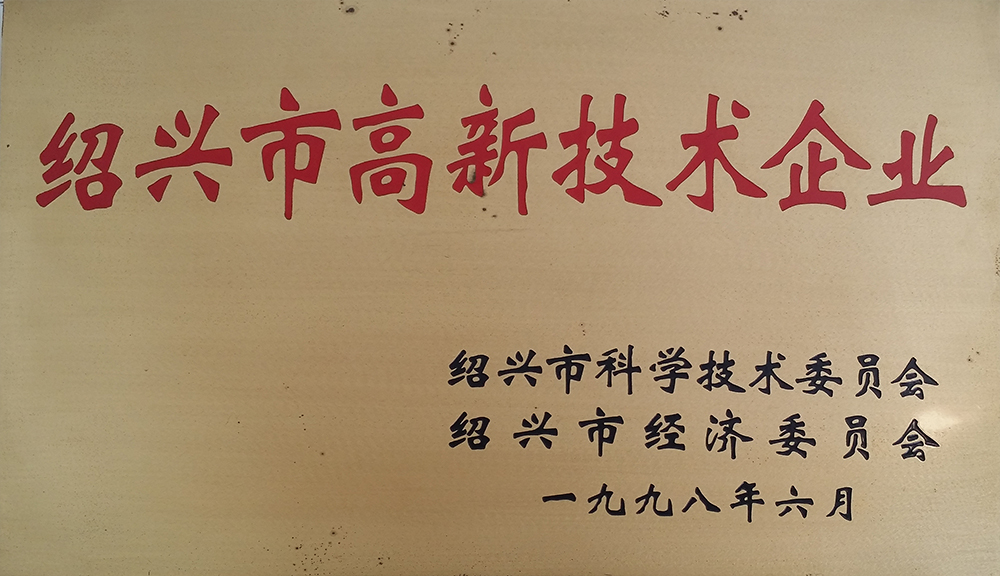 绍兴市高新技术企业
绍兴市科学技术委员会
绍兴市经济委员会
一九九八年六月